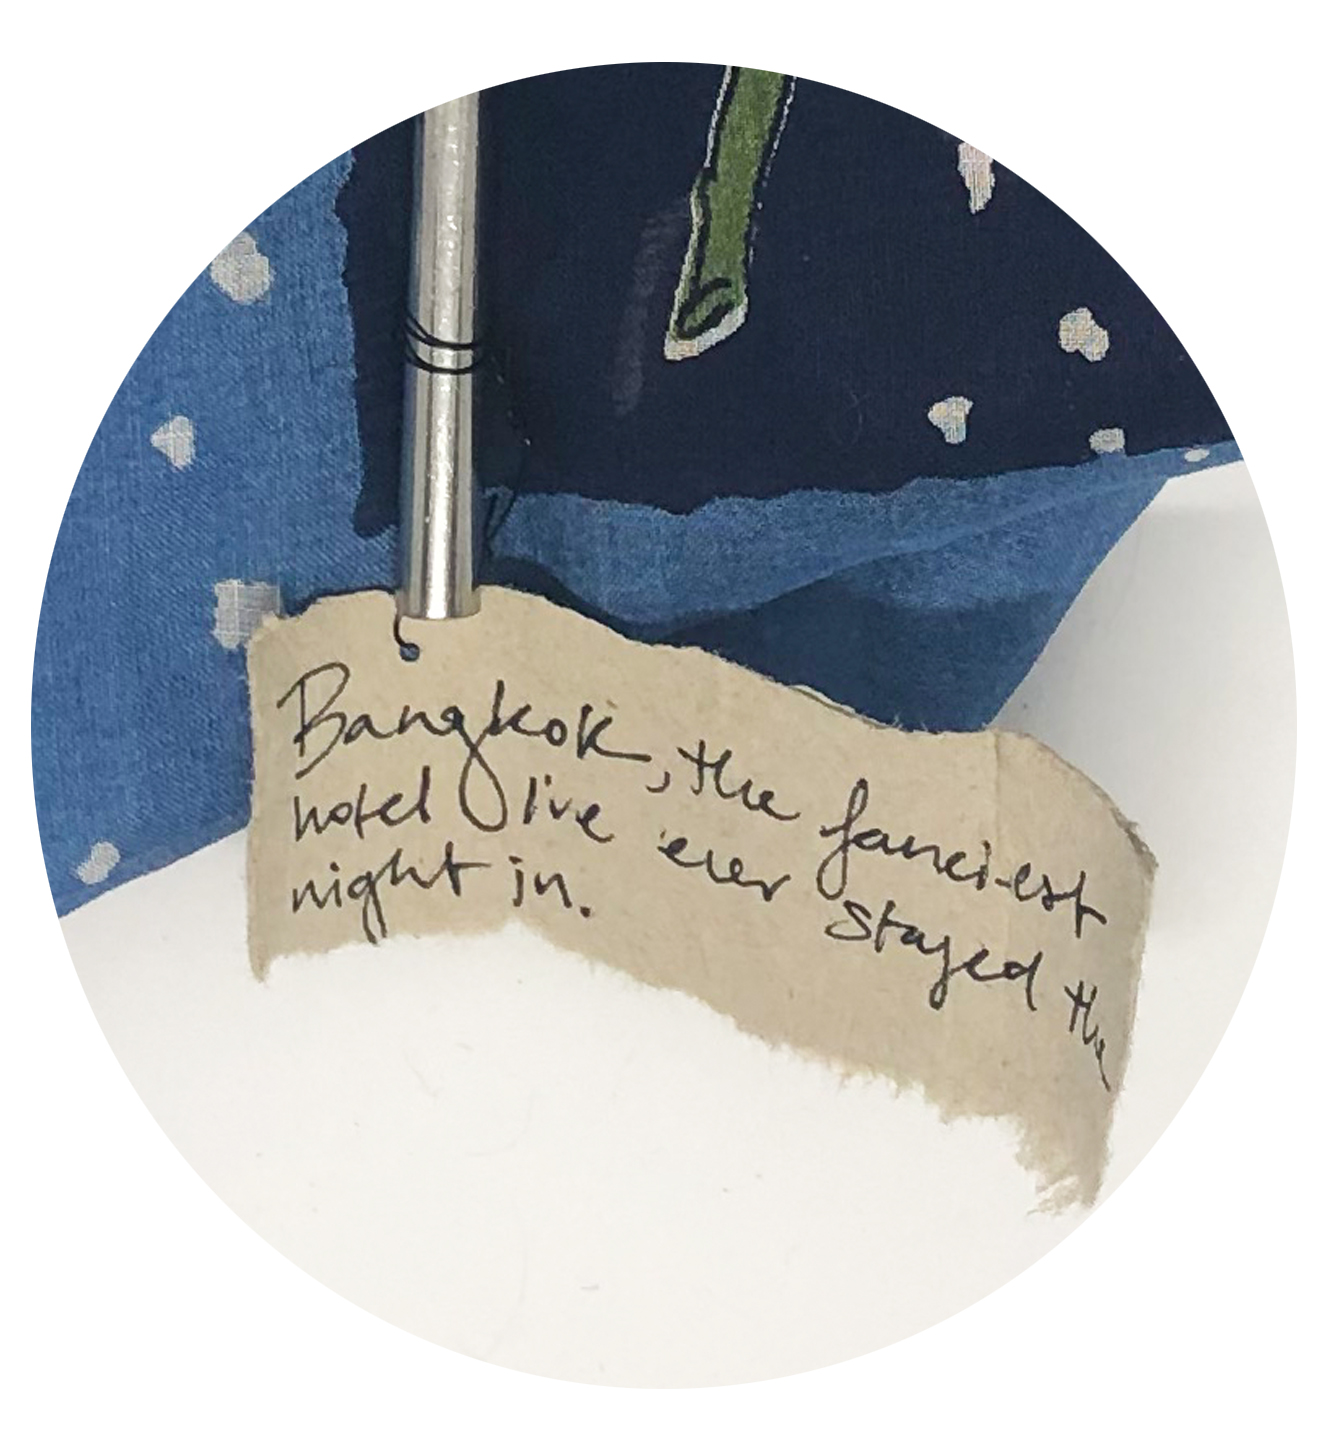 Bangkok, the fanciest
hotel I've ever stayed the
night in.